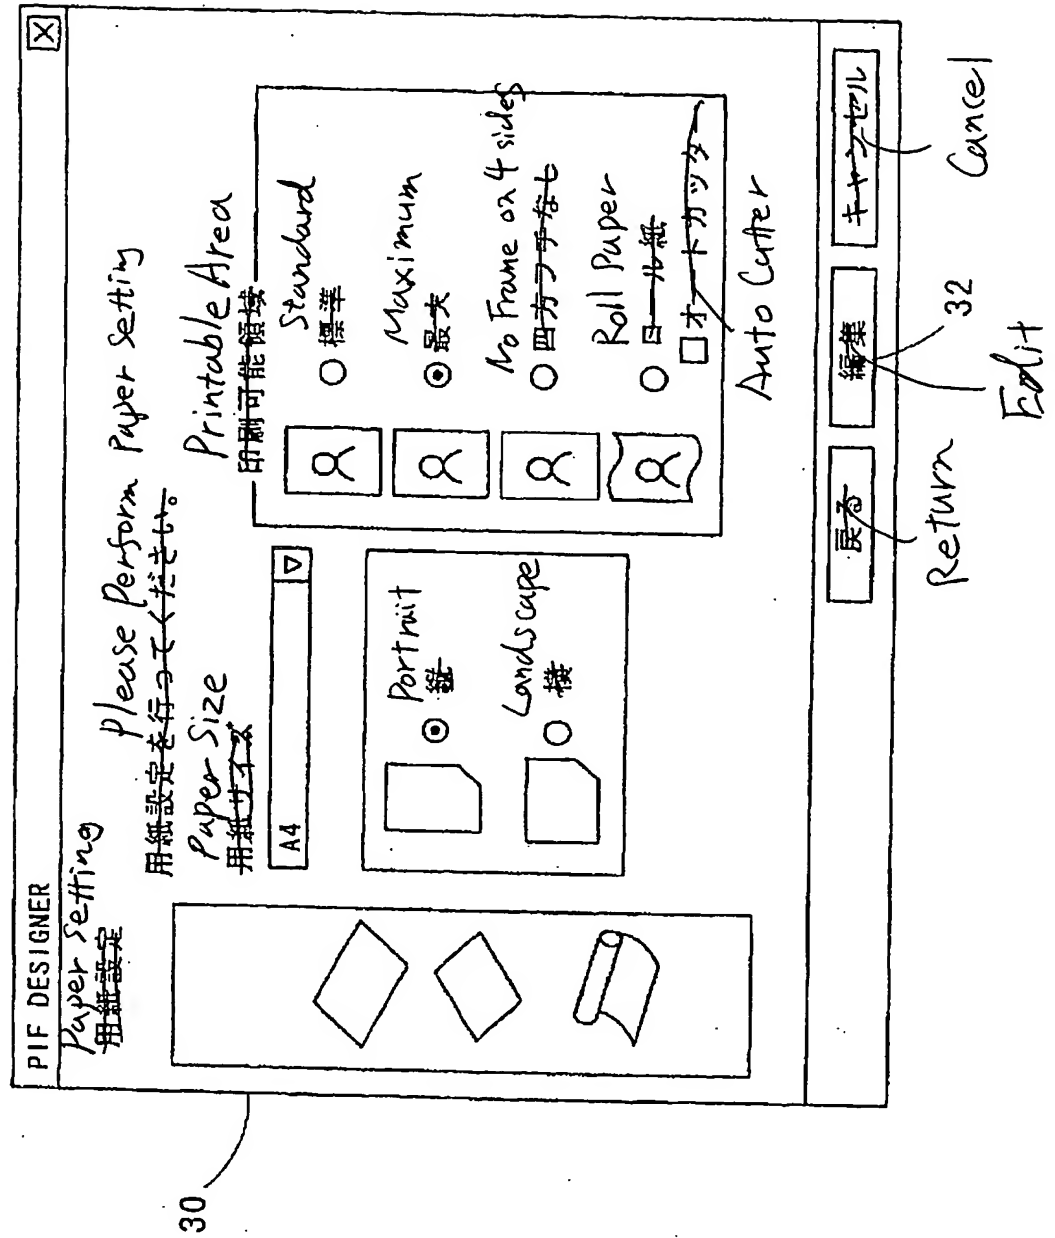 PIF DESIGNER
Paper Setting
用紙設定
Please Perform Paper Setting
用紙設定を行ってください。
Paper Size
用紙サイズ
A4
Portrait
縦
Landscape
横
Printable Area
印刷可能領域
Standard
標準
Maximum
最大
No Frame on 4 sides
四方フチなし
Roll Paper
ロール紙
オートカッター
Auto Cutter
戻る
編集
キャンセル
Return
32
Edit
Cancel
30